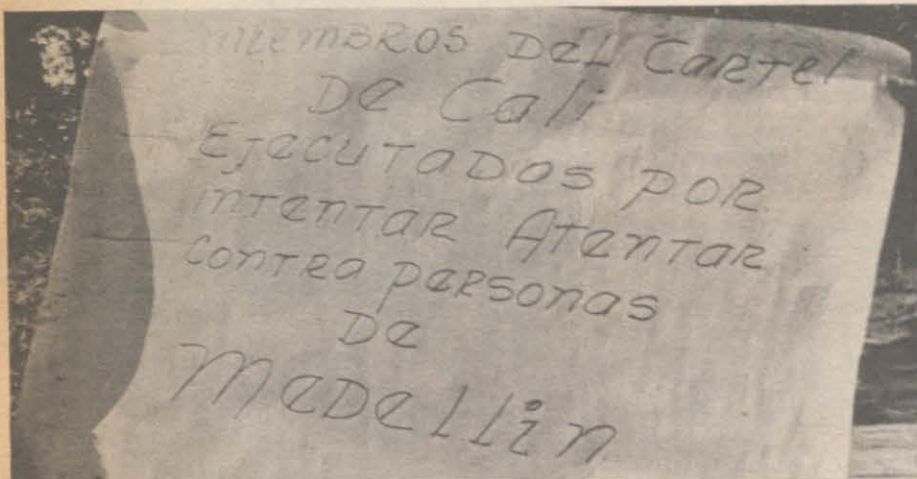 MIEMBROS DEL CARTEL
DE Cali
EJECUTADOS POR
INTENTAR ATENTAR
CONTRA PERSONAS
DE
MEDELLIN